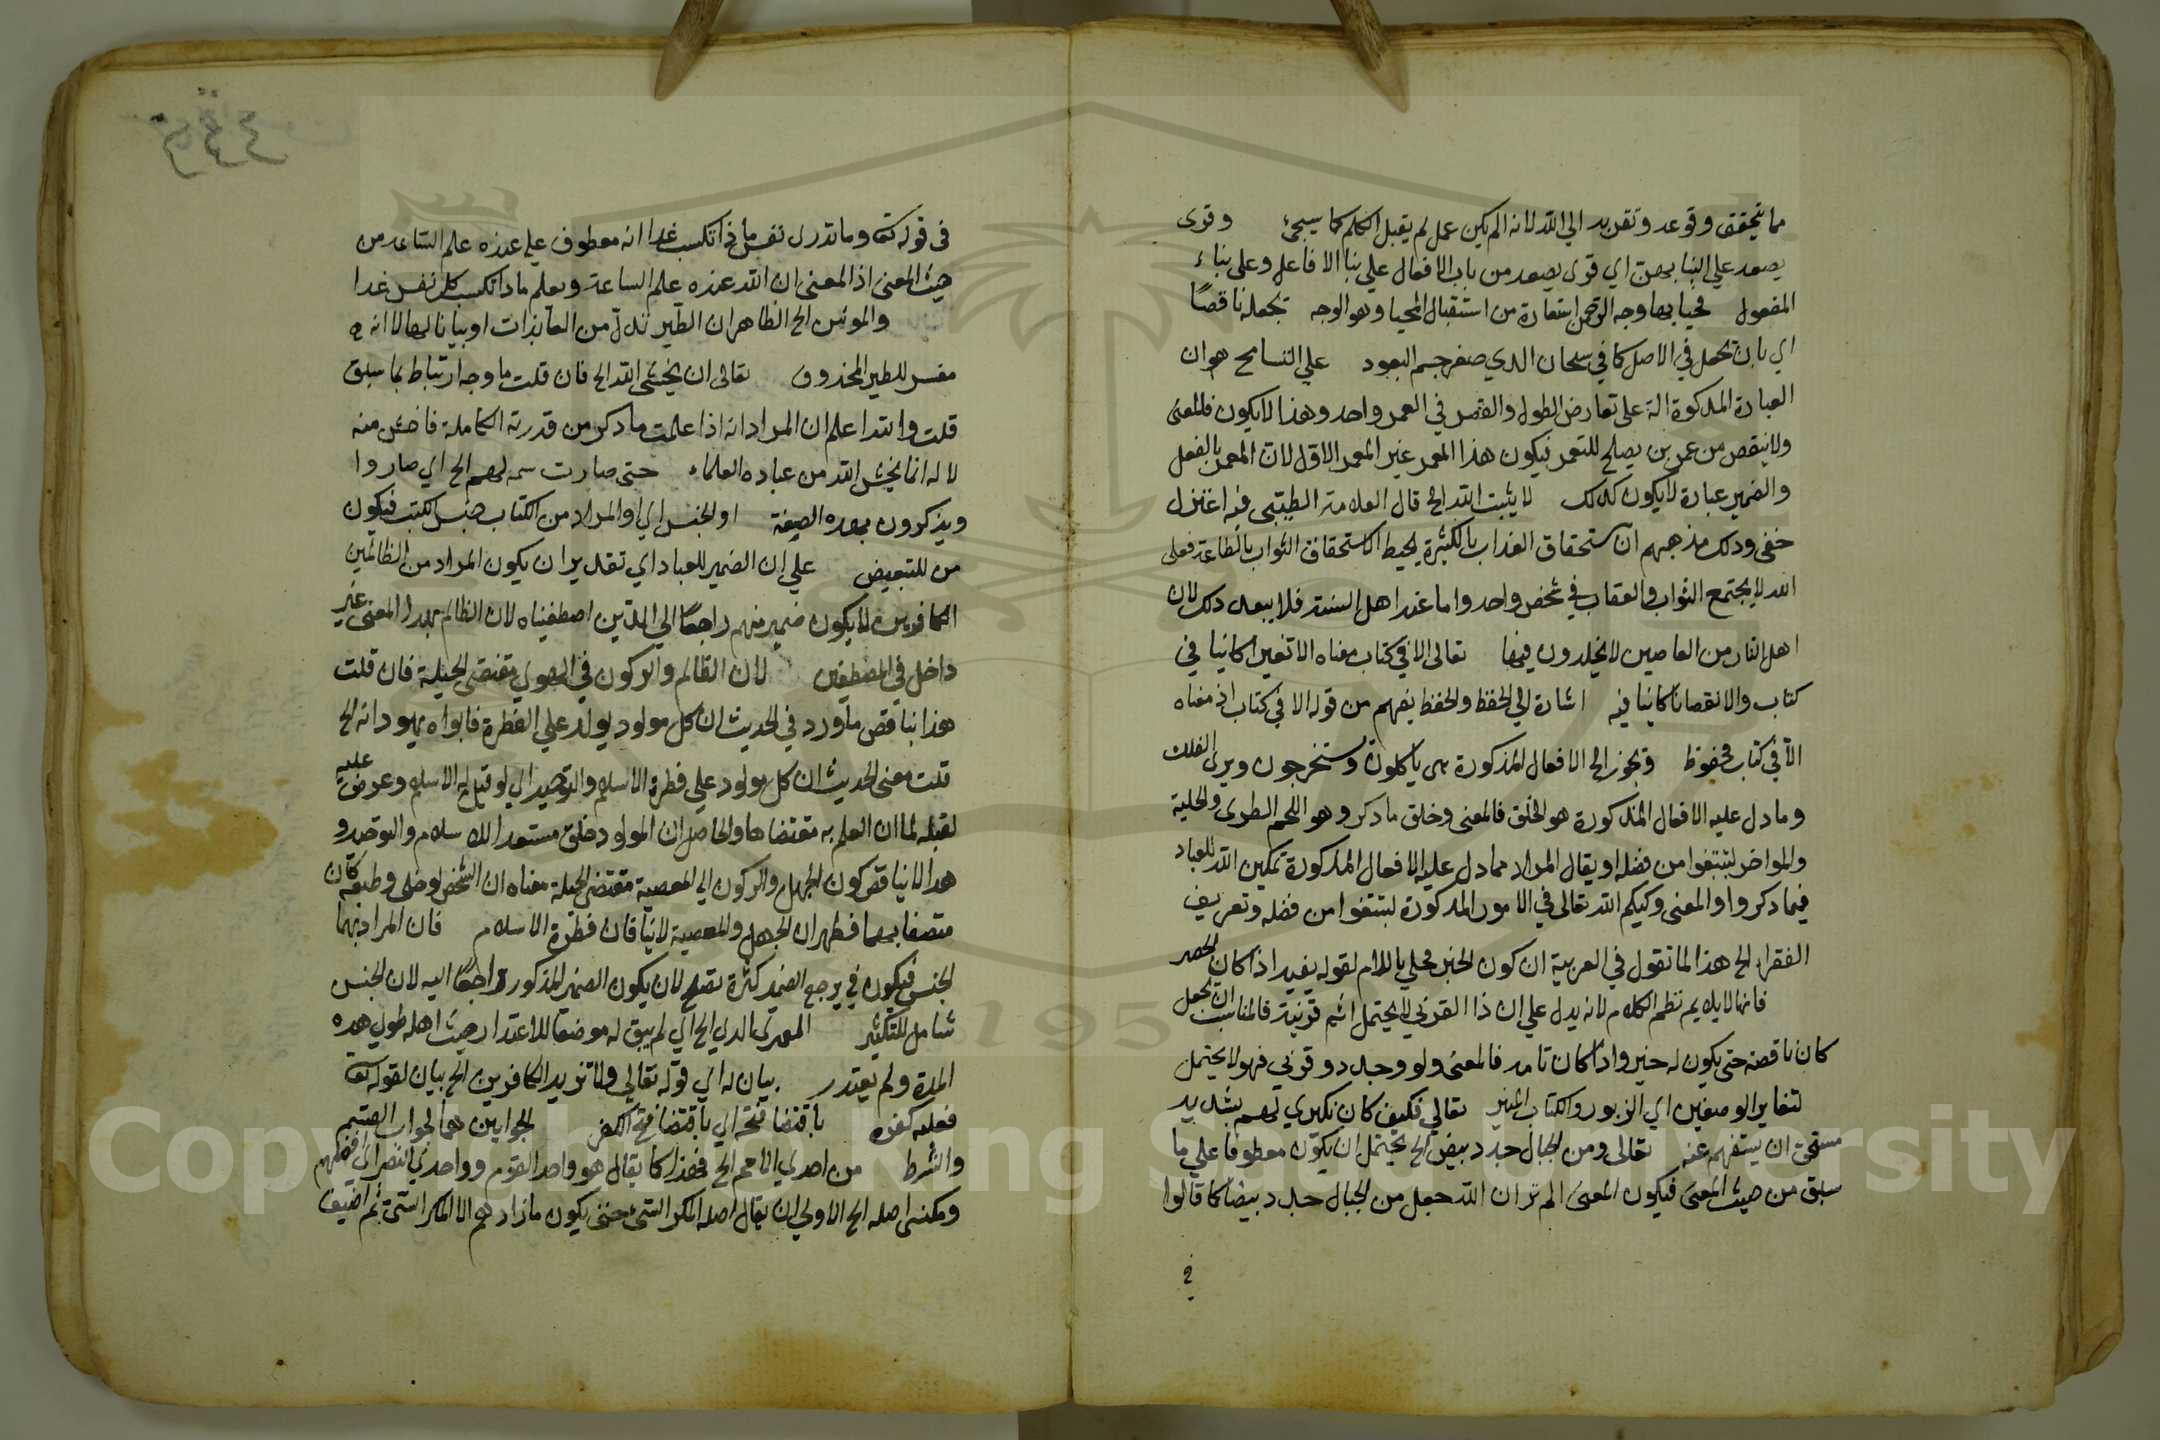 مما يتحقق وقوعه وتقريره الي الله لانه الم يكن عمل لم يقبل الكلم كما سيجيء وقوى
يصعد علي البنا بهن اي قوى يصعد من باب الافعال علي بنا الفاعل وعلي بناء
المفعول فحيا بها وجه الرحمن استعارة من استقبال المحيا وهو الوجه تجعله ناقصا
اي بان تجعل في الاصل كما في سبحان الدي صغر جسم البعوض علي التسامح هو ان
العبارة المدكورة الة علي تعارض الطول والقصر في العمر واحد وهذا لا يكون فالمعنى
ولا ينقص من عمر من يصلح للتعمر فيكون هذا المعمر غير المعمر الاول لان المعمر بالفعل
والضمير عبارة لا يكون كدلك لا يثبت الله الخ قال العلامة الطيبي فيه اعتزال
خفي ودلك مذهبهم ان استحقاق العذاب بالكبيرة يحبط استحقاق الثواب بالطاعة فعلى
الله لا يجتمع الثواب والعقاب في شخص واحد واما عند اهل السنة فلا يبعد دلك لان
اهل النار من العاصين لا يخلدون فيها تعالى الا في كتاب معناه الا تعيرا كائنا في
كتاب والا نقصانا كائنا فيه اشارة الي الحفظ والحفظ يفهم من قوله الا في كتاب اذ معناه
الا في كتاب محفوظ ويجوز الخ الافعال المذكورة هي ياكلون وستخرجون ويرى الفلك
وما دل عليه الافعال المدكورة هو الخلق فالمعنى وخلق ما دكر وهو اللحم الطرى والحلية
والمواخر لتبتغوا من فضله او يقال المراد مما دل عليه الافعال المدكورة تمكين الله للعباد
فيما دكر والمعنى وكيكم الله تعالى في الامور المدكورة لتبتغوا من فضله وتعريف
الفقراء الخ هذا لما تقول في العربية ان كون الخبر محلي باللام لقوله يفيد اذا كان الحصر
فانها لا يلايم نظم الكلام لانه يدل علي ان ذا القربي لا يحتمل اثم قرنيه فالمناسب ان يجعل
كان ناقصة حتى يكون له خبر واذا كان تامه فالمعنى ولو وجد دو قربي فهو لا يحتمل
لتغاير الوصفين اي الزبور والكتاب المنير تعالي فكيف كان نكيري لهم بتشديد
مستحق ان يستفهم عنه تعالى ومن الجبال جدد بيض الخ يحتمل ان يكون معطوفا علي ما
سبق من حيث المعنى فيكون المعنى الم تر ان الله جعل من الجبال جدد بيضا كما قالوا
في
في قوله تعا وما تدرى نفس ماذا تكسب غدا انه معطوف علي عنده علم الساعة من
حيث المعنى اذ المعنى ان الله عنده علم الساعة ويعلم ماذا تكسب كل نفس غدا
والمؤمن الخ الظاهر ان الطير بدل من العائذات او بيانا لها لا انه
مفسر للطير المحذوف تعالى ان يخشى الله الخ فان قلت ما وجه ارتباط بما سبق
قلت والله اعلم ان المراد انه اذا علمت ما دكر من قدرته الكاملة فاخش منه
لانه انما يخشى الله من عباده العلماء حتى صارت سمه لهم الخ اي صاروا
ويذكرون بهده الصيغة او الجنس اي او المراد من الكتاب جنس الكتب فيكون
من للتبعيض علي ان الضمير للعباد اي تقدير ان يكون المراد من الظالمين
الكافرين لا يكون ضمير منهم راجعا الي الدين اصطفيناه لان الظالم بهدا المعنى غير
داخل في المصطفين لان الظالم والركون في الهوي مقتضى الجبلة فان قلت
هذا يناقض ما ورد في الحديث ان كل مولود يولد علي الفطرة فابواه يهودانه الخ
قلت معنى الحديث ان كل مولود علي فطرة الاسلام والتوحيد اي لو قيل له الاسلام وعرض عليه
لقبله لما ان العلم به مقتضاها والحاصل ان المولود خلق مستعدا للاسلام والتوحيد و
هدا لا يناقض كون الجهل والركون الي المعصية مقتضى الجبلة معناه ان الشخص لو خلى وطبعه كان
متصفا بهما فظهر ان الجهل والمعصية لا ينافان فطرة الاسلام فان المراد بهما
الجنس فيكون في مرجع الضمير كثرة تصلح لان يكون الضمير المذكور راجعا اليه لان الجنس
شامل للتكثير العمر الدي الخ اي لم يبق له موضعا للاعتذار حيث امهله طول هده
المدة ولم يعتدر بيان له اي قوله تعالي ولا تزيد الكافرين الخ بيان لقوله تعا
فعليه كفره باقتضا فتحه اي باقتضا فتح الكفر الجوابين هما الجواب القسم
والشرط من احدي الامم الخ فهذا كما يقال هو واحد القوم وواحد في النصر اي افضلهم
ومكر السيئ اصله الخ الاولي ان يقال اصله المكر السيئ حتى يكون مازادهم الا المكر السيئ ثم اضيف